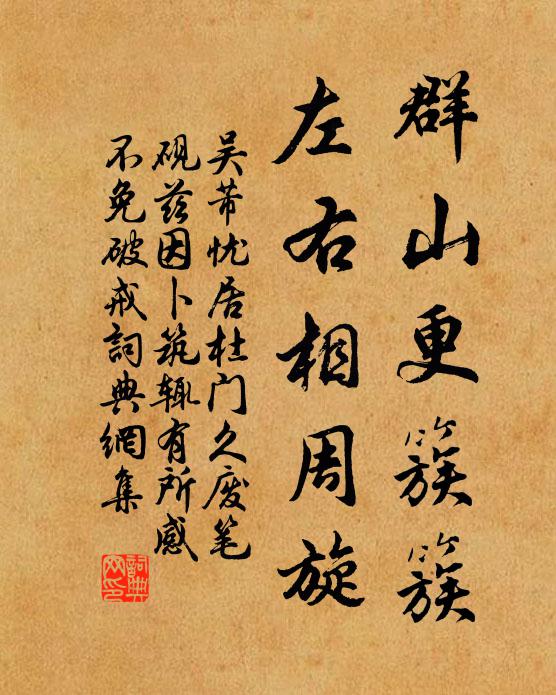 群山更簇簇
左右相周旋
吴芾忧居杜门久废笔
砚兹因卜筑辄有所感
不免破戒詞典網集
詞典
网印